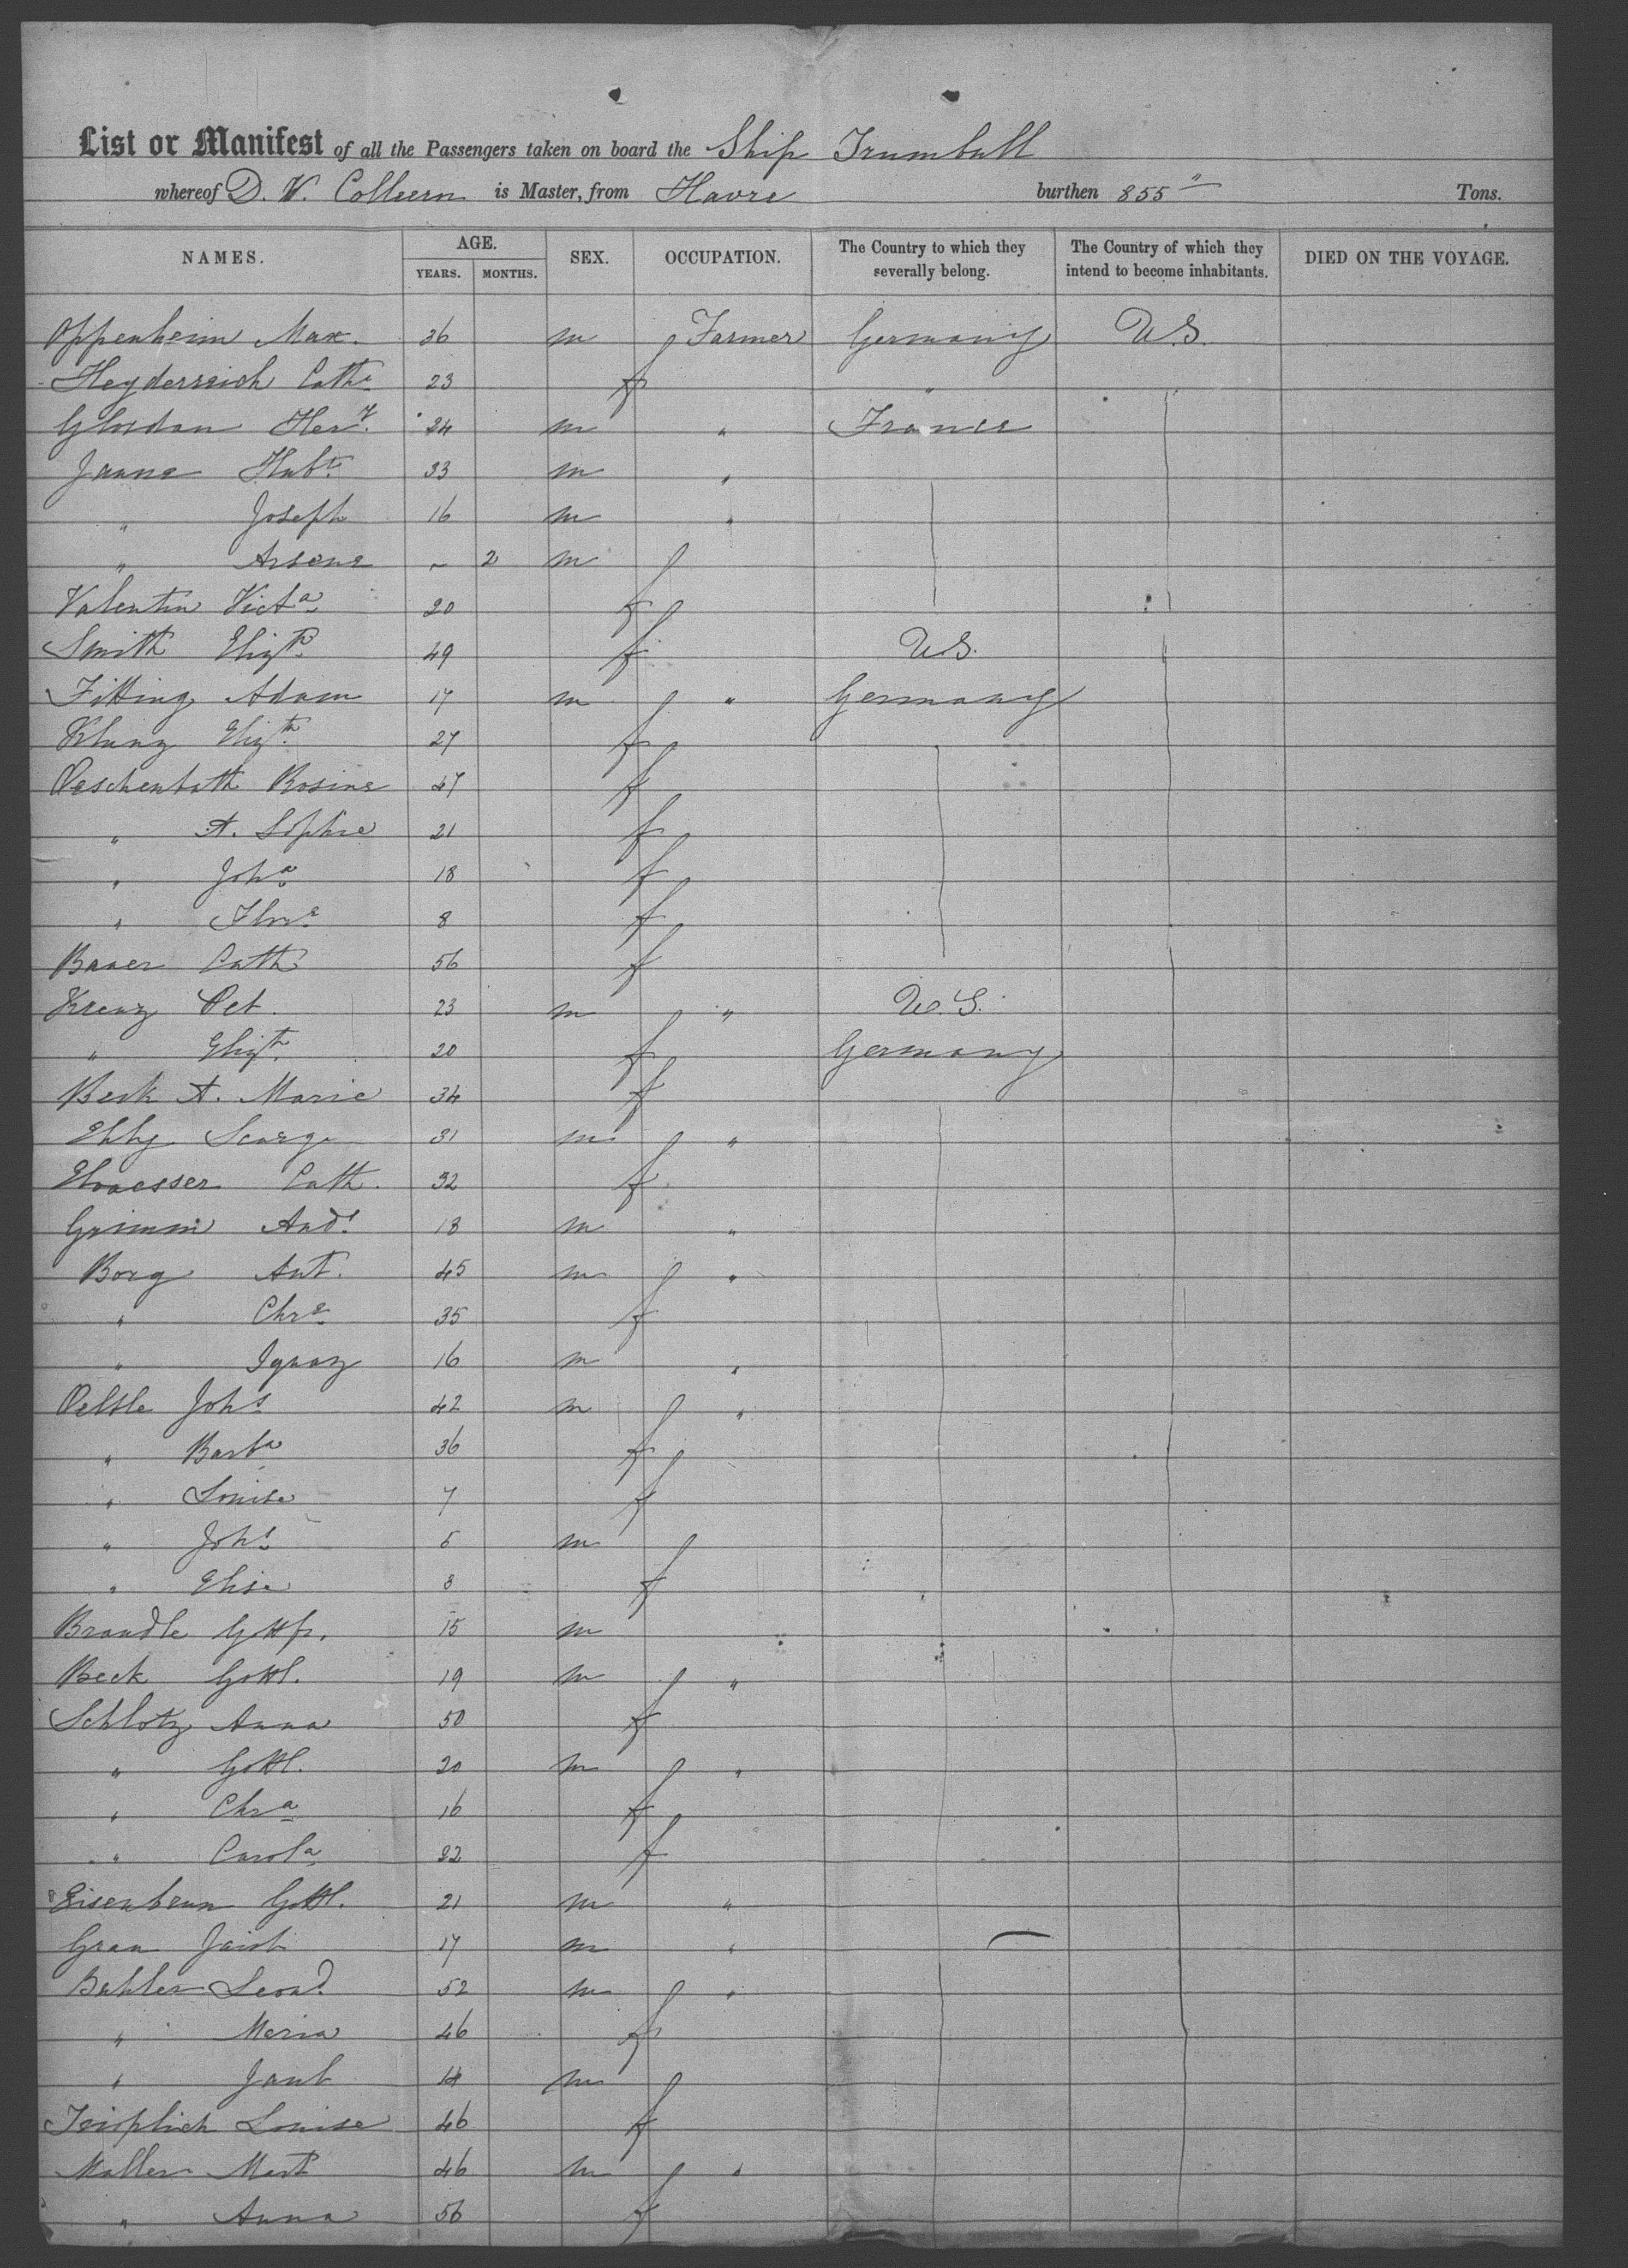 List or Manifest of all the Passengers taken on board the Ship Trumbull
whereof D. W. is Master, from Havre burthen 855 " Tons.
NAMES. AGE. SEX. OCCUPATION. The Country to which they severally belong. The Country of which they intend to become inhabitants. DIED ON THE VOYAGE.
YEARS. MONTHS.
Oppenheim Max. 36 m Farmer Germany U.S.
Heyderreich Cathe 23 f "
Glordan Hery. 24 m " France
Janne Hubt 33 m "
" Joseph 16 m "
" Arsene ~ 2 m
Valentin Victa 20 f
Smith Elizth 49 f U.S.
Fitting Adam 17 m " Germany
Klunz Elizth 27 f
Oeschenbath Rosine 47 f
" A. Sophie 21 f
" Joha 18 f
" Flore 8 f
Bauer Cath 56 f
Kreuz Pet. 23 m " U.S.
" Elizth. 20 f Germany
Beck A. Marie 34 f
Ebly George 31 m "
Elvaesser Cath. 32 f
Grimm Ands 18 m "
Borg Ant. 45 m "
" Chre 35 f
" Ignaz 16 m "
Oelsle Johs 42 m "
" Barba 36 f
" Louise 7 f
" Johs 5 m
" Elise 3 f
Brandle Gottfr. 15 m
Beck Gottl. 19 m "
Schlotz Anna 50 f
" Gottl. 20 m "
" Chra 16 f
" Carola 22 f
Eisenbraun Gottl. 21 m "
Grau Jacob 17 m "
Buhler Leond. 52 m "
" Maria 46 f
" Jacob 14 m
Louise 46 f
Muller Mart 46 m "
" Anna 56 f